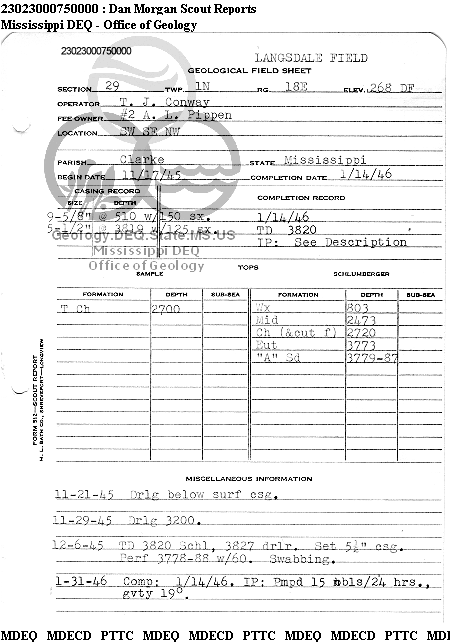 23023000750000 : Dan Morgan Scout Reports
Mississippi DEQ - Office of Geology
23023000750000
LANGSDALE FIELD
GEOLOGICAL FIELD SHEET
SECTION 29 TWP. 1N RG. 18E ELEV. 268 DF
OPERATOR T. J. Conway
FEE OWNER #2 A. L. Pippen
LOCATION SW SE NW
PARISH Clarke STATE Mississippi
BEGIN DATE 11/17/45 COMPLETION DATE 1/14/46
CASING RECORD
SIZE DEPTH COMPLETION RECORD
9-5/8" @ 510 w/150 sx. 1/14/46
5-1/2" @ 3819 w/125 sx. TD 3820
Geology.DEQ.State.MS.US
IP: See Description
Mississippi DEQ
Office of Geology
TOPS
SAMPLE SCHLUMBERGER
FORMATION DEPTH SUB-SEA FORMATION DEPTH SUB-SEA
T Ch 2700 Wx 803
Mid 2473
Ch (&cut f) 2720
Eut 3773
"A" Sd 3779-87
FORM 512—SCOUT REPORT
M. L. BATH CO., SHREVEPORT—LONGVIEW
MISCELLANEOUS INFORMATION
11-21-45 Drlg below surf csg.
11-29-45 Drlg 3200.
12-6-45 TD 3820 Schl, 3827 drlr. Set 5½" csg.
Perf 3778-88 w/60. Swabbing.
1-31-46 Comp: 1/14/46. IP: Pmpd 15 bbls/24 hrs.,
gvty 19°.
MDEQ MDECD PTTC MDEQ MDECD PTTC MDEQ MDECD PTTC MDI